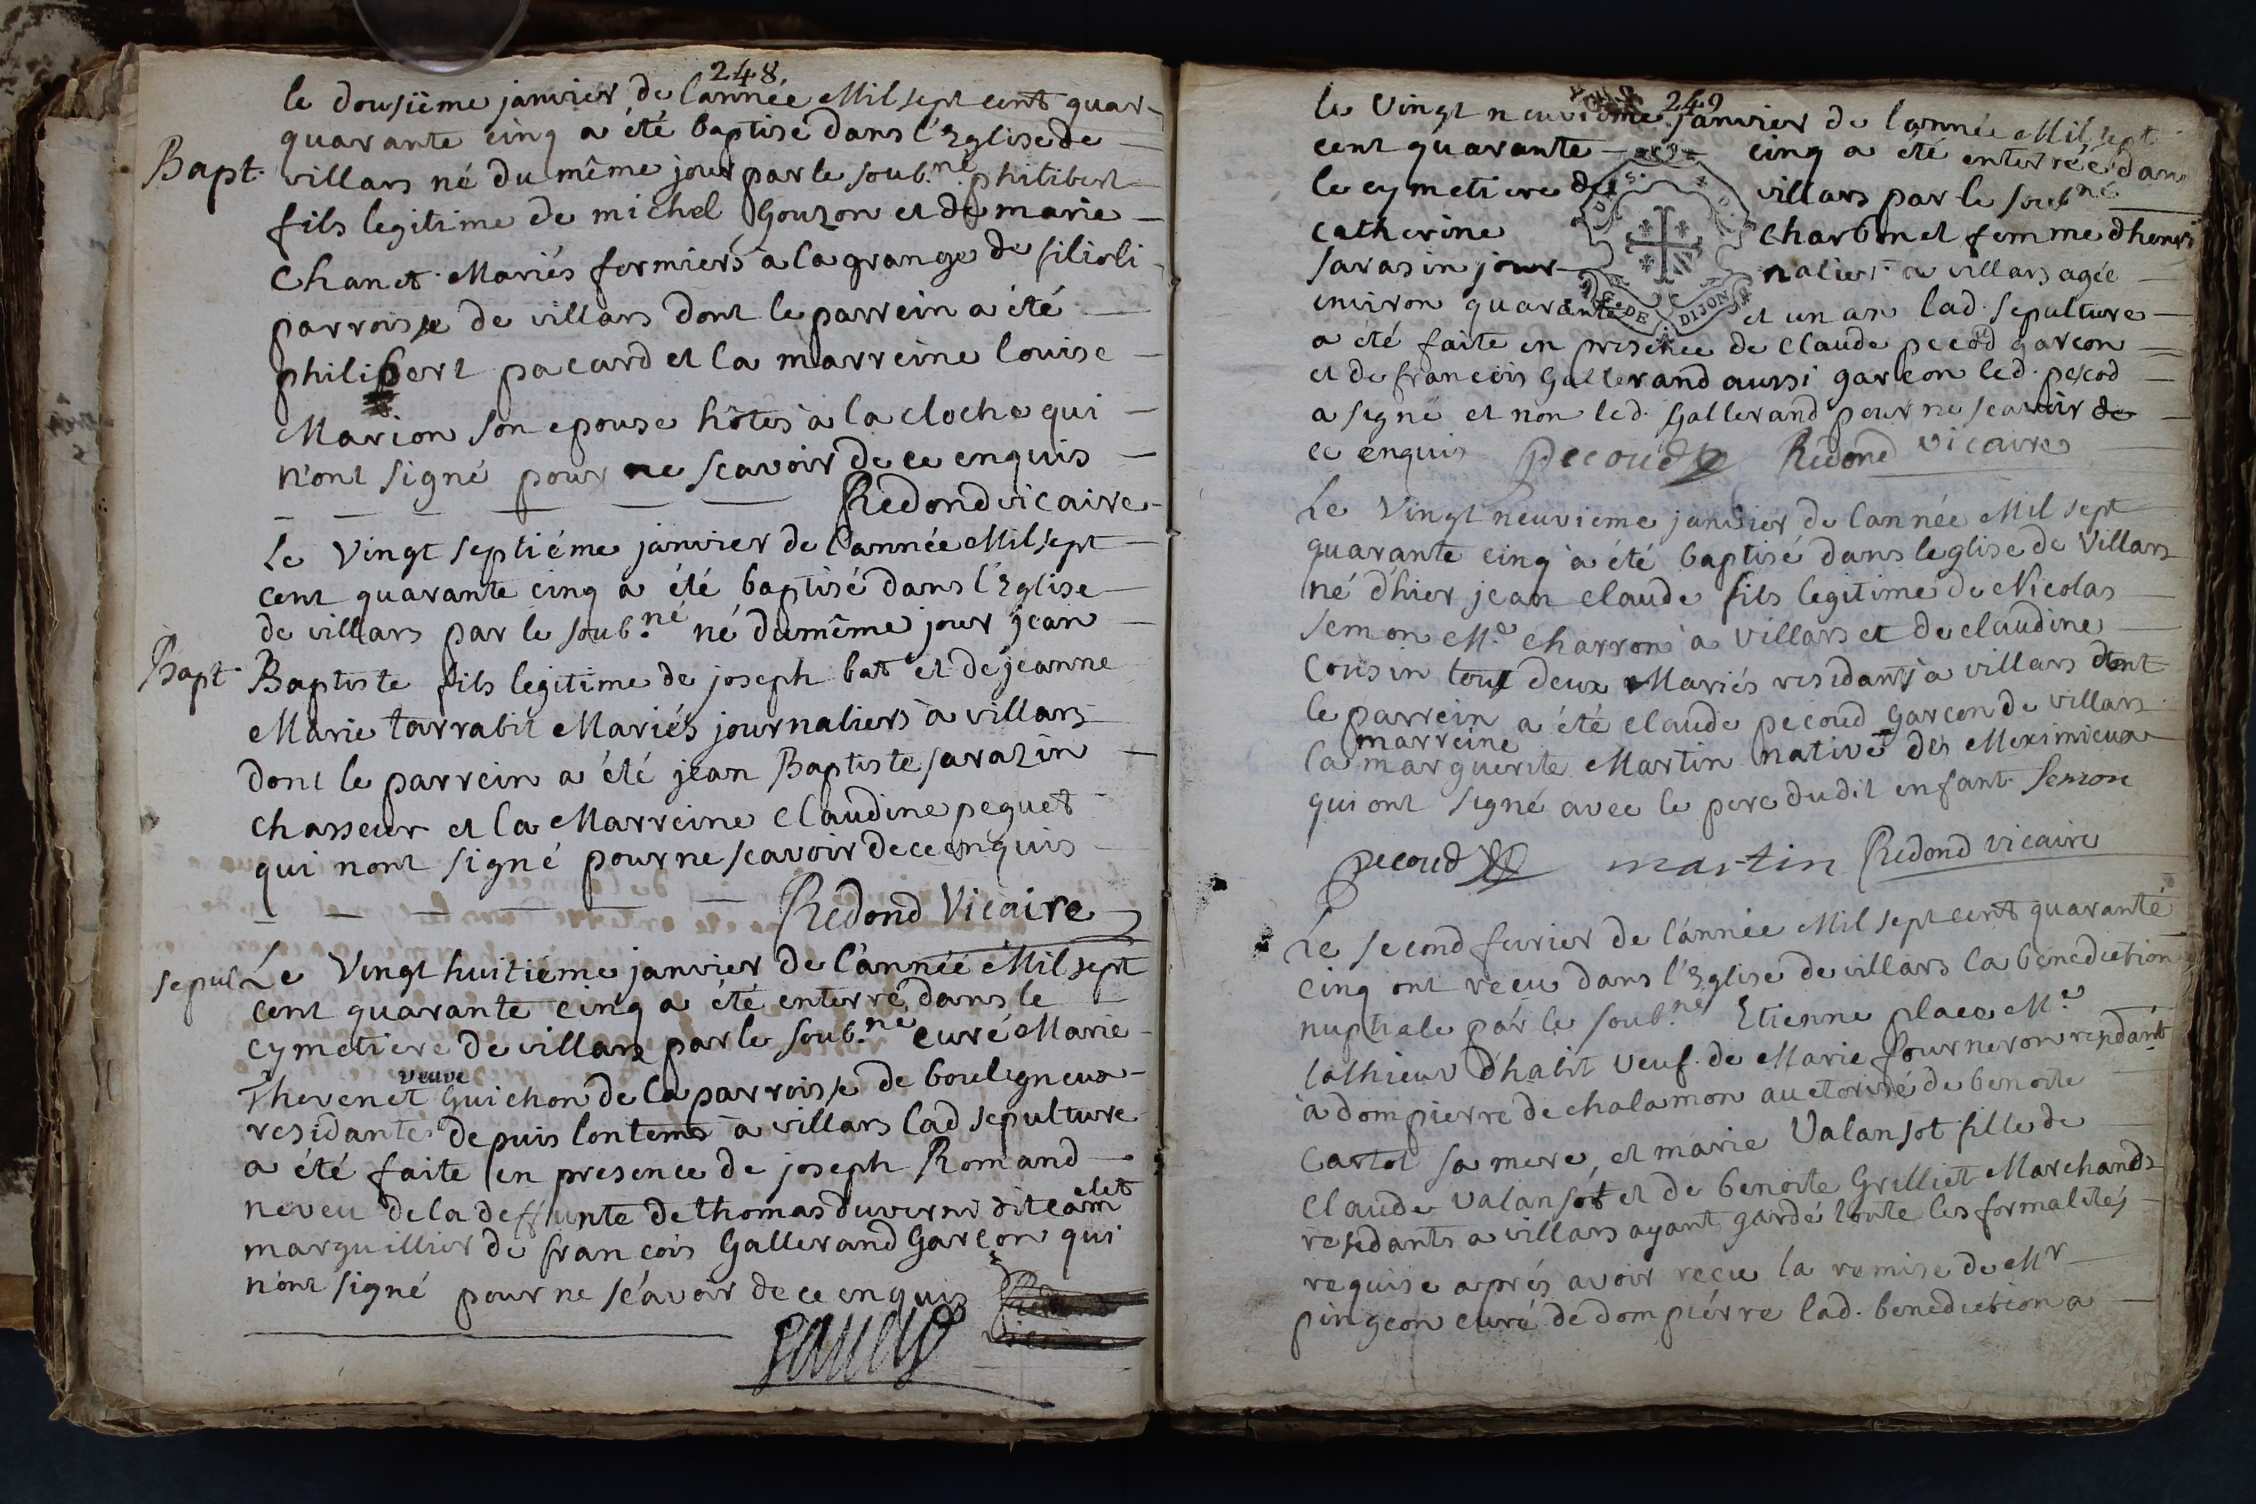 248.
le dousiême janvier de l'année Mil sept cent quar-
quarante cinq a été baptisé dans l'Eglise de
Bapt. villars né du même jour par le soub.né philibert
fils legitime de michel Gouzon et de marie
Chanet Mariés fermiers a la grange de filioli
parroisse de villars dont le parrein a été
philibert pacard et la marreine louise
Marion son epouse hôtes à la cloche qui
n'ont signé pour ne scavoir de ce enquis
Redond vicaire
Le Vingt septiéme janvier de l'année Mil sept
cent quarante cinq a été baptisé dans l'Eglise
de villars par le soub.né né du même jour jean
Bapt. Baptiste fils legitime de joseph bat et de jeanne
Marie tarrabit Mariés journaliers à villars
dont le parrein a été jean Baptiste sarazin
chasseur et la Marreine Claudine peguet
qui nont signé pour ne scavoir de ce enquis
Redond Vicaire
sepul Le Vingt huitiéme janvier de l'année Mil sept
cent quarante cinq a été enterré dans le
cymetiere de villars par le soub.né curé Marie
veuve
Thevenet Guichon de la parroisse de bouligneux
residante depuis lontems à villars lad sepulture
a été faite en presence de joseph Romand
neveu de la deffunte de thomas duverni dit camelet
marguillier de francois Gallerand Garcon qui
n'ont signé pour ne sçavoir de ce enquis
249
le Vingt neuvieme janvier de l'année Mil sept
cent quarante cinq a été enterrée dans
le cymetiere de villars par le soub.né
catherine charbonet femme d'henri
sarasin journalier a villars agée
environ quarante et un an lad. sepulture
DE DIJON
a été faite en presence de Claude pecod garcon
et de francois Gallerand aussi garcon led. pecod
a signé et non led. Gallerand pour ne scavoir de
ce enquis pecoud Redond vicaire
Le Vingt neuvieme janvier de l'année Mil sept
quarante cinq a été baptisé dans leglise de Villars
né d'hier jean claude fils legitime de Nicolas
semon M.e charron à villars et de claudine
Cousin tous deux Mariés residants à villars dont
le parrein a été claude pecoud Garcon de villars
marreine
la marguerite Martin native de Meximieux
qui ont signé avec le pere dudit enfant. Semon
pecoud martin Redond vicaire
Le second fevrier de l'année Mil sept cent quarante
cinq ont reçu dans l'Eglise de villars la benediction
nuptiale par le soub.né Etienne place M.e
tallieur d'habit veuf de Marie fourneron residant
à dompierre de chalamon auctorisé de benoite
Cartot sa mere, et marie Valansot fille de
Claude Valansot et de benoite Grilliet Marchands
residants a villars ayant gardé toute les formalités
requise aprés avoir reçu la remise de Mr
pingeon curé de dompiérre lad. benediction a